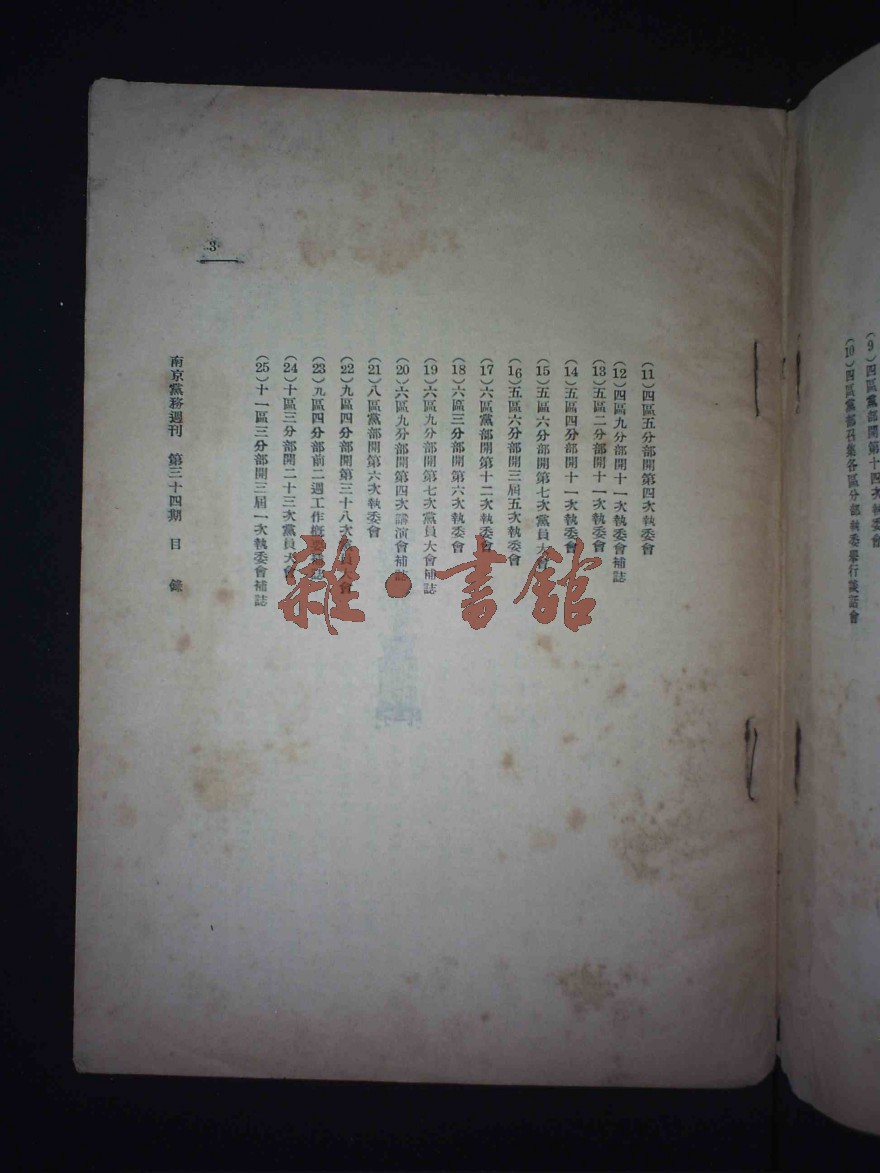 (9)四區黨部開第十四次執委會
(10)四區黨部召集各區分部執委舉行談話會
(11)四區五分部開第四次執委會
(12)四區九分部開十一次執委會補誌
(13)五區二分部開十一次執委會
(14)五區四分部開十一次執委會
(15)五區六分部開第七次黨員大會
(16)五區六分部開三屆五次執委會
(17)六區黨部開第十二次執委會
(18)六區三分部開第六次執委會
(19)六區九分部開第七次黨員大會補誌
(20)六區九分部開第四次講演會補誌
(21)八區黨部開第六次執委會
(22)九區四分部開第三十八次黨員大會
(23)九區四分部前二週工作概要補誌
(24)十區三分部開二十三次黨員大會
(25)十一區三分部開三屆一次執委會補誌
南京黨務週刊 第三十四期 目 錄
3
雜·書館